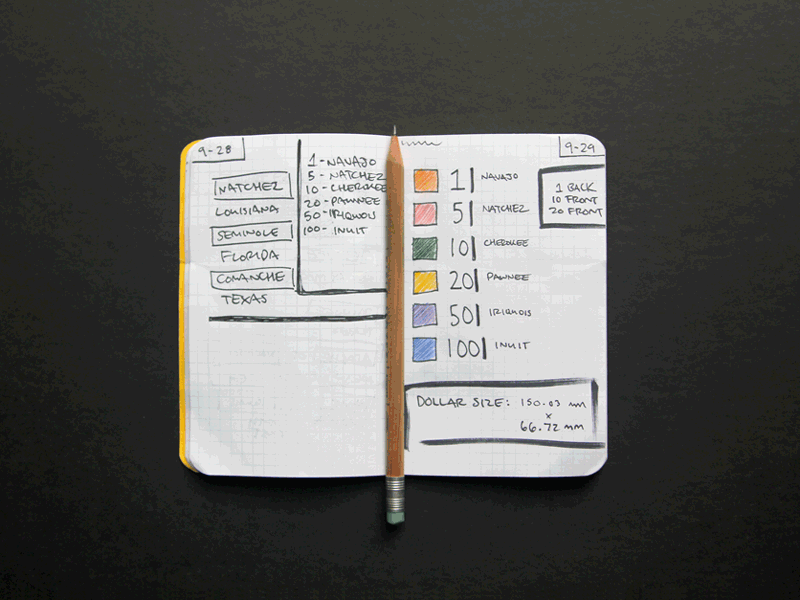 9-28
NATCHEZ
LOUISIANA
SEMINOLE
FLORIDA
COMANCHE
TEXAS
1-NAVAJO
5-NATCHEZ
10-CHEROKEE
20-PAWNEE
50-IRIQUOU
100-INUIT
9-29
1 NAVAJO
5 NATCHEZ
10 CHEROKEE
20 PAWNEE
50 IRIQUOIS
100 INUIT
1 BACK
10 FRONT
20 FRONT
DOLLAR SIZE: 150.03 mm
x
66.72 mm